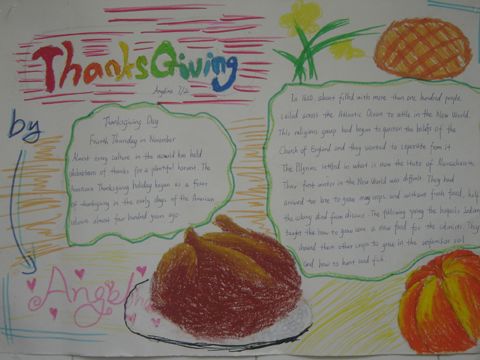 ThanksGiving
Angelina 7/2
by
Thanksgiving Day
Fourth Thursday in November
Almost every culture in the world has held
celebrations of thanks for a plentiful harvest. The
Thanksgiving holiday began as a feast
of thanksgiving in the early days of the American
almost four hundred years ago
In 1620, a boat filled with more than one hundred people
sailed across the Atlantic Ocean to settle in the New World.
This religious group had begun to question the beliefs of the
Church of England and they wanted to separate from it.
The Pilgrims settled in what is now the state of Massachusetts.
Their first winter in the New World was difficult. They had
arrived too late to grow many crops, and without fresh food, half
the died from disease. The following spring the Iroquois Indians
taught them how to grow corn a new food for the colonists. They
showed them other crops to grow in the soil
and how to hunt and fish.